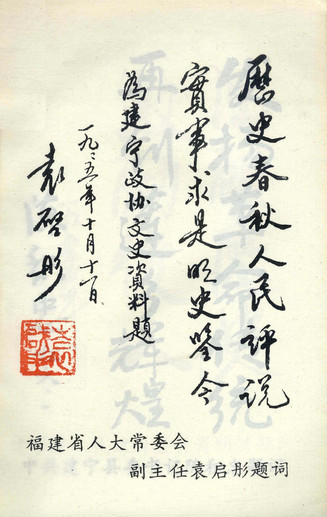 歷史春秋人民評說
實事求是明史鑒今
為建宁政协文史資料題
一九九五年十月十一日
袁啓彤
福建省人大常委会
副主任袁启彤题词